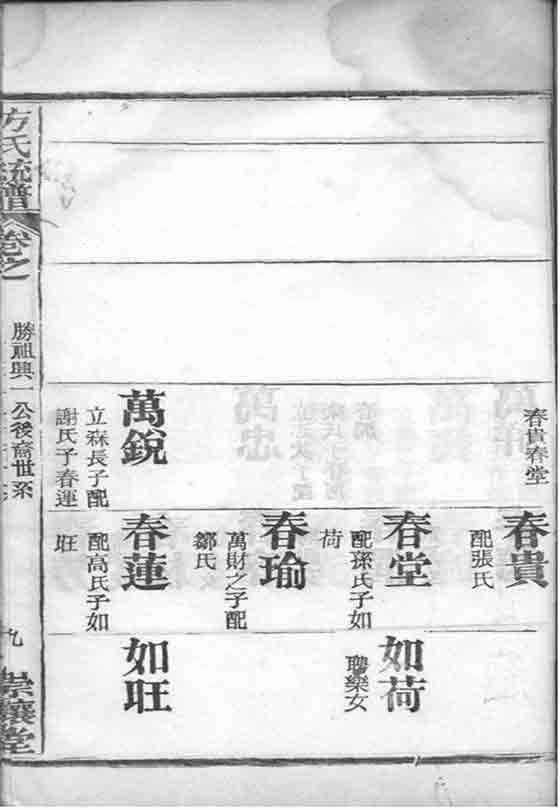 春貴春堂
萬銳
立森長子配
謝氏子春蓮
春貴
配張氏
春堂
配孫氏子如
荷
春瑜
萬財之子配
鄒氏
春蓮
配高氏子如
旺
如荷
聘欒女
如旺
方氏統譜
卷之一
勝祖興公後裔世系
九
崇讓堂